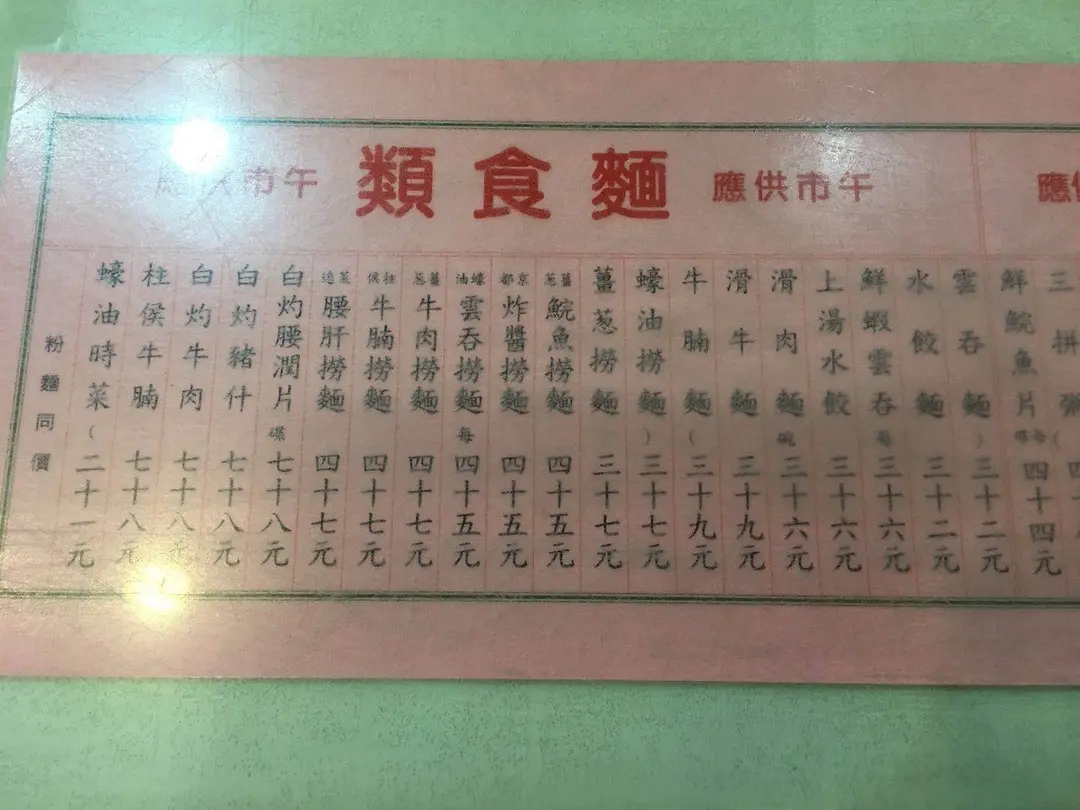 午市供應 麵食類 午市供應
三拼粥
鮮鯇魚片 四十四元
雲吞麵 ) 三十二元
水餃麵 三十二元
鮮蝦雲吞 每 三十六元
上湯水餃 三十六元
滑肉麵 碗 三十六元
滑牛麵 三十九元
牛腩麵 ( 三十九元
蠔油撈麵 ) 三十七元
薑葱撈麵 三十七元
薑葱鯇魚撈麵 四十五元
京都炸醬撈麵 四十五元
蠔油雲吞撈麵 每 四十五元
薑葱牛肉撈麵 四十七元
柱侯牛腩撈麵 四十七元
菜遠腰肝撈麵 四十七元
白灼腰潤片 碟 七十八元
白灼豬什 七十八元
白灼牛肉 七十八元
柱侯牛腩 七十八元
蠔油時菜 ( 二十一元
粉麵同價